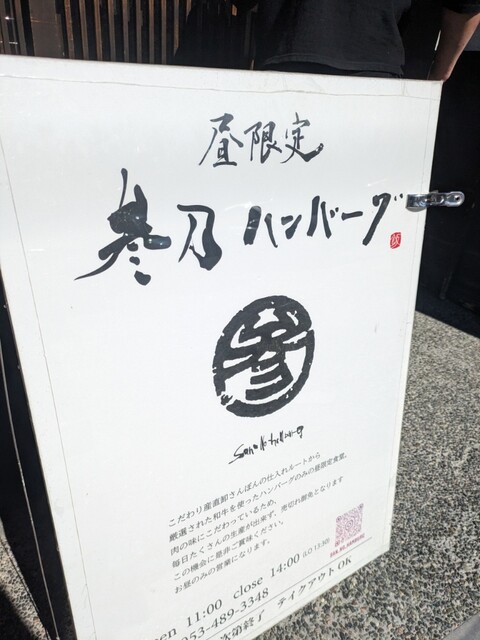 昼限定
参乃ハンバーグ
参
こだわり産直卸さんぼんの仕入れルートから
厳選された和牛を使ったハンバーグのみの昼限定食堂。
肉の味にこだわっているため、
毎日たくさんの生産が出来ず、売切れ御免となります
この機会に是非ご賞味ください。
お昼のみの営業になります。
open 11:00 close 14:00 (LO 13:30)
053-489-3348
次第終了 テイクアウトOK